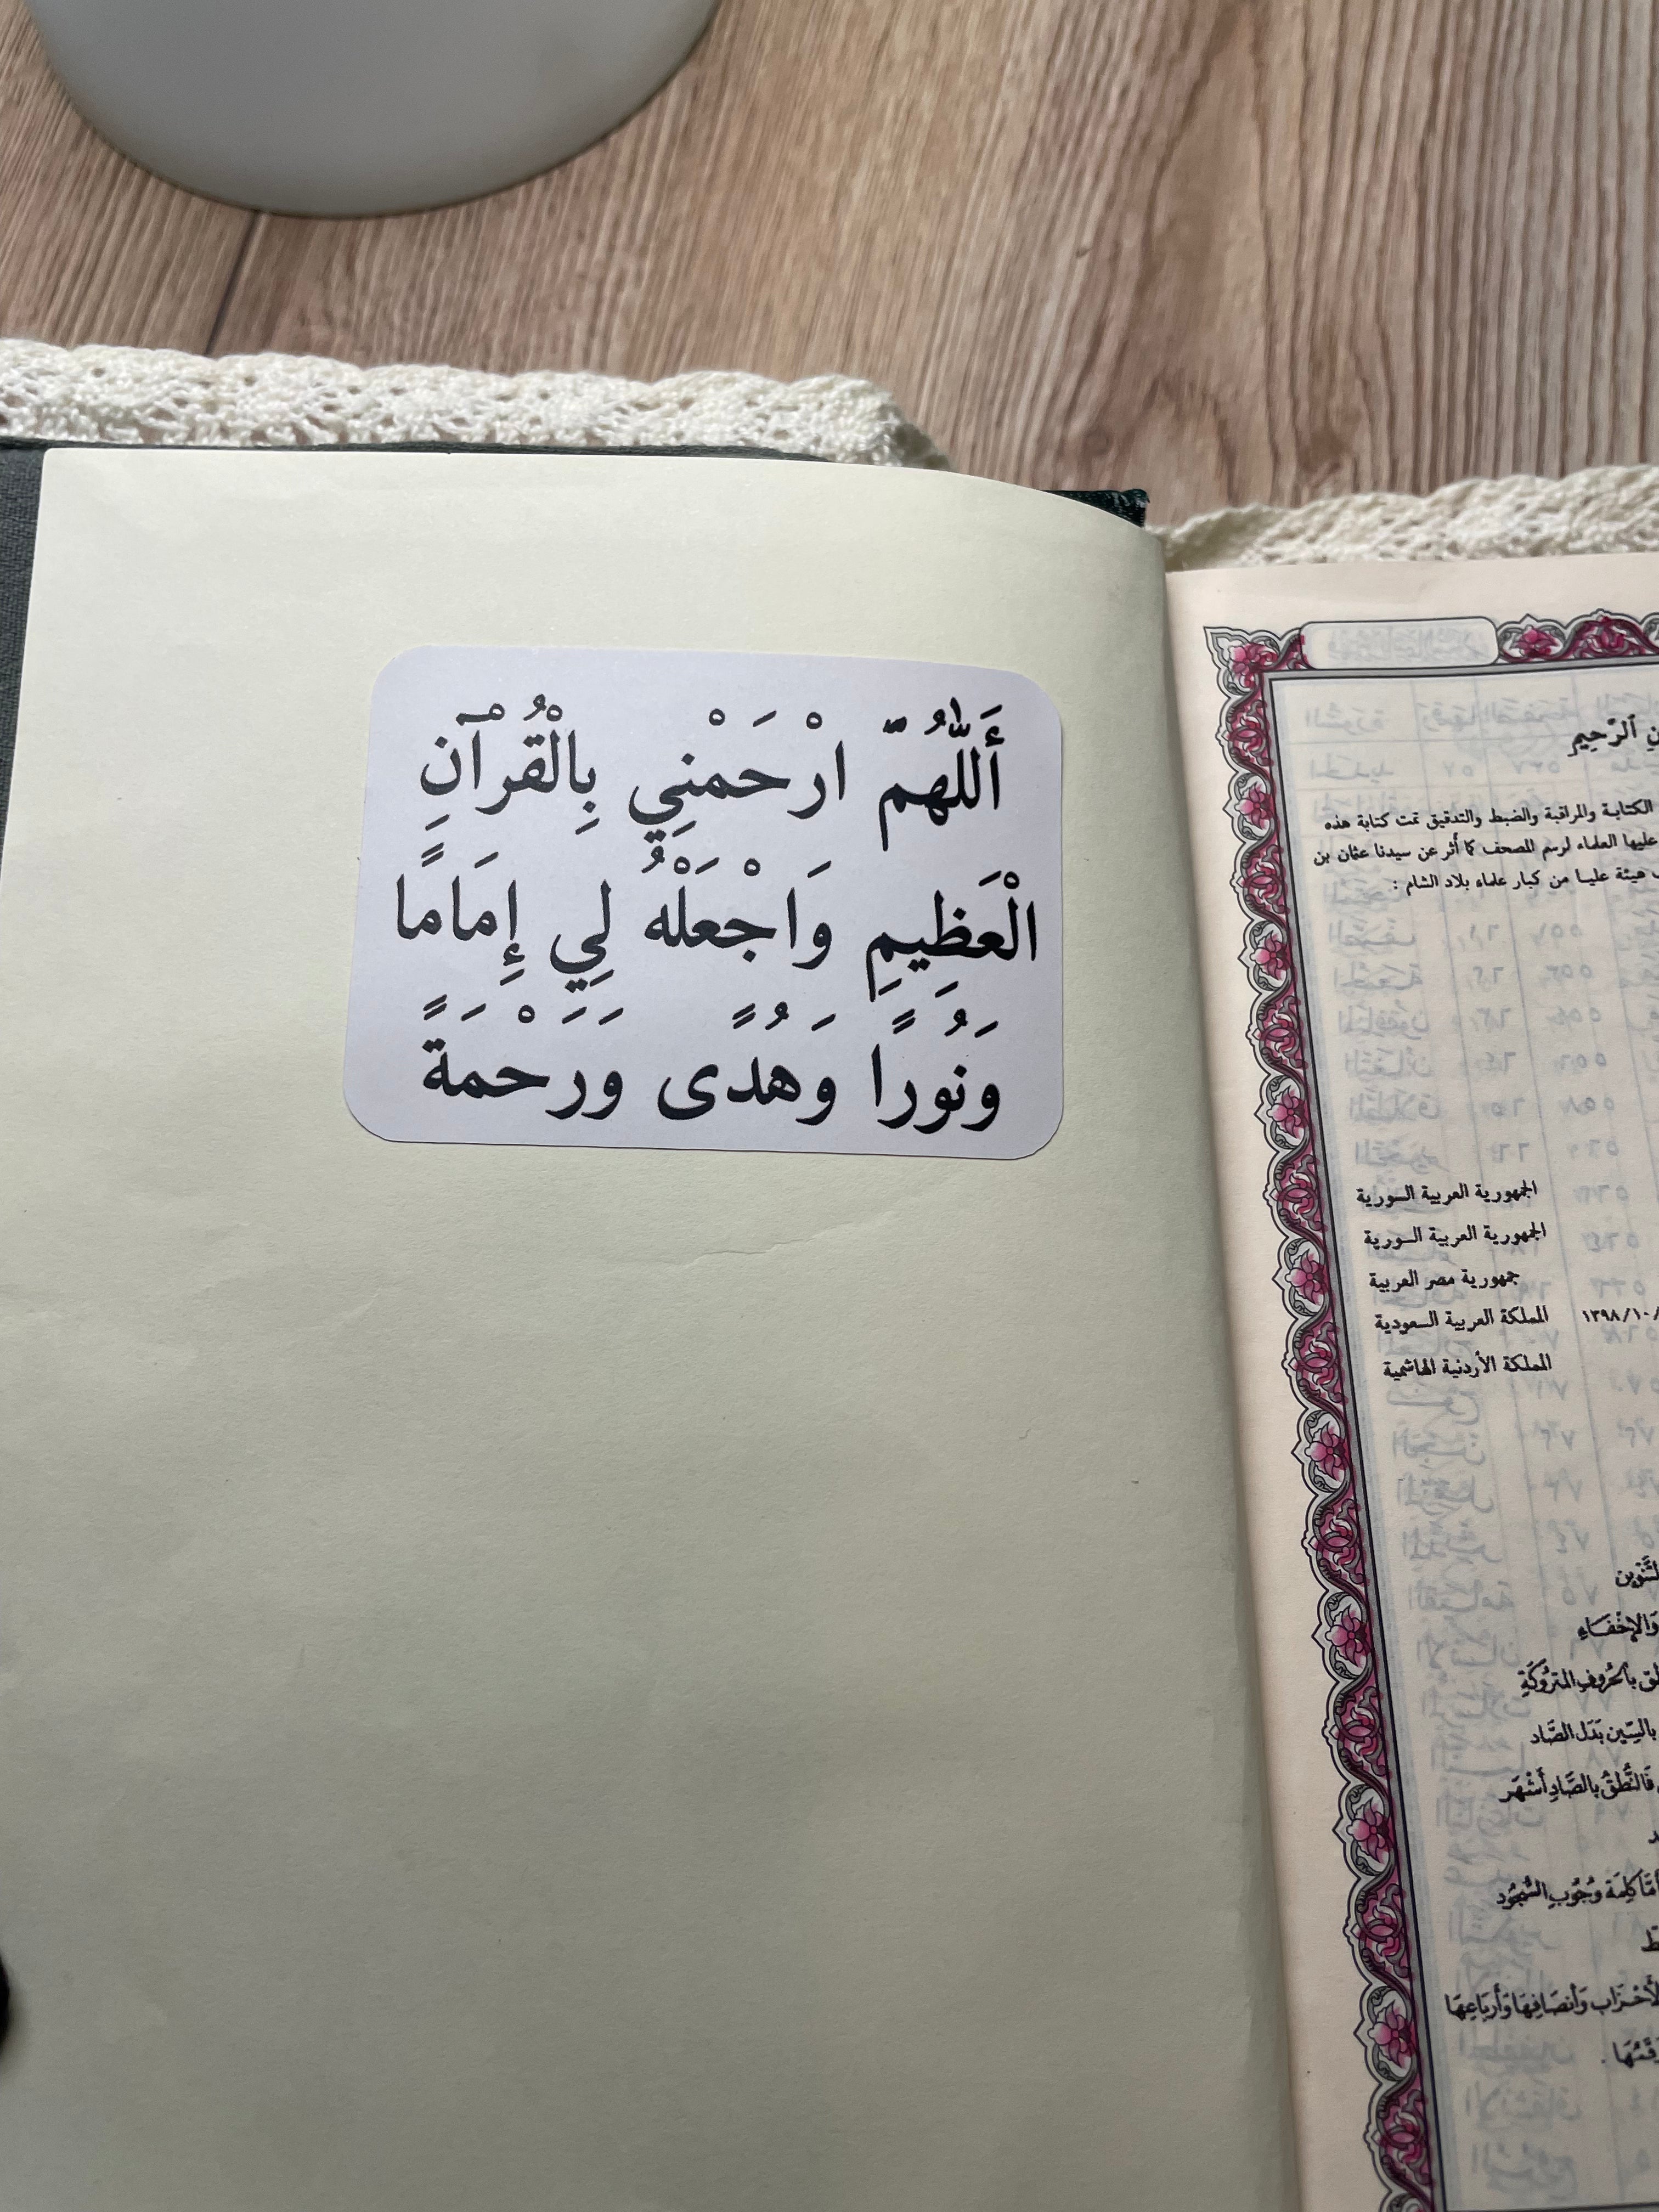 أَللّٰهُمَّ ارْحَمْنِي بِالْقُرْآنِ
الْعَظِيمِ وَاجْعَلْهُ لِي إِمَامًا
وَنُورًا وَهُدًى وَرَحْمَةً
الرَّحِيمِ
الكتابة والمراقبة والضبط والتدقيق تمت كتابة هذه
عليها العلماء لرسم المصحف كما أُثر عن سيدنا عثمان بن
هيئة عليا من كبار علماء بلاد الشام :
الجمهورية العربية السورية
الجمهورية العربية السورية
جمهورية مصر العربية
المملكة العربية السعودية
المملكة الأردنية الهاشمية
وَالإِخْفَاءِ
بِالْحُرُوفِ المَتْرُوكَةِ
بِالسِّين بَدَل الصَّاد
فَالنُّطْقُ بِالصَّادِ أَشْهَر
أَمَّا كَلِمَة وُجُوبِ السُّجُود
وَأَنصَافِهَا وَأَربَاعِهَا